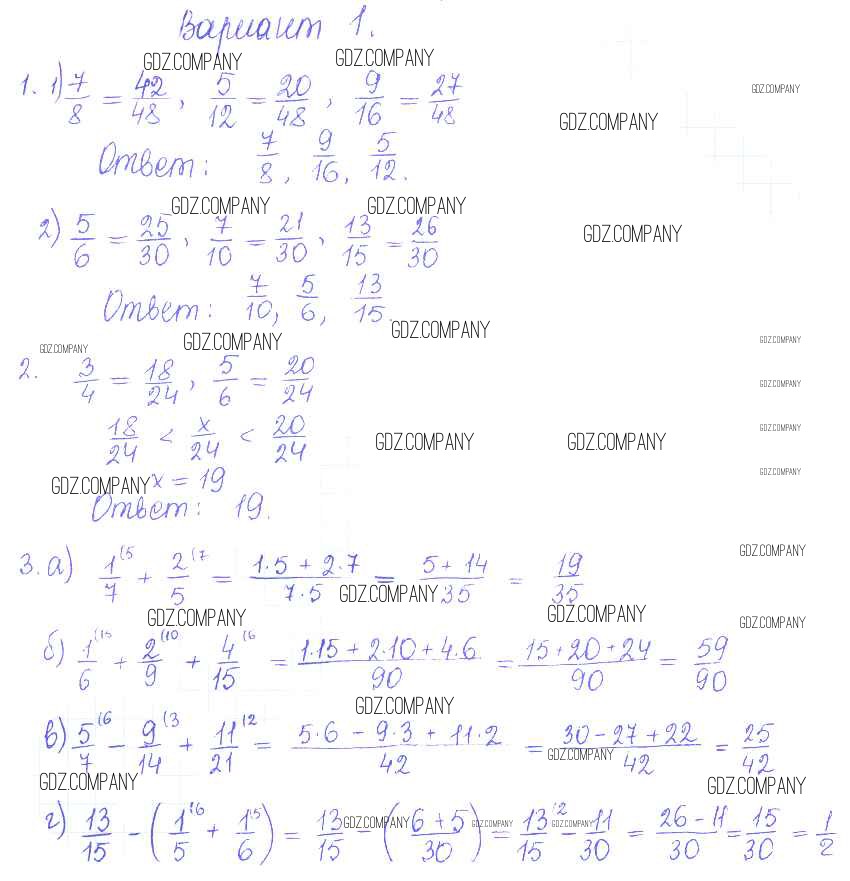 Вариант 1.
GDZ.COMPANY GDZ.COMPANY
GDZ.COMPANY
1. 1) 7/8 = 42/48, 5/12 = 20/48, 9/16 = 27/48
GDZ.COMPANY
Ответ: 7/8, 9/16, 5/12.
GDZ.COMPANY GDZ.COMPANY
2) 5/6 = 25/30, 7/10 = 21/30, 13/15 = 26/30
GDZ.COMPANY
Ответ: 7/10, 5/6, 13/15.
GDZ.COMPANY
GDZ.COMPANY GDZ.COMPANY GDZ.COMPANY
2. 3/4 = 18/24, 5/6 = 20/24
GDZ.COMPANY
18/24 < x/24 < 20/24
GDZ.COMPANY GDZ.COMPANY GDZ.COMPANY
GDZ.COMPANY x = 19
GDZ.COMPANY
Ответ: 19.
GDZ.COMPANY
3. а) 1(5/7 + 2(7/5 = 1·5 + 2·7/7·5 = 5 + 14/35 = 19/35
GDZ.COMPANY
GDZ.COMPANY GDZ.COMPANY GDZ.COMPANY
б) 1(15/6 + 2(10/9 + 4(6/15 = 1·15 + 2·10 + 4·6/90 = 15 + 20 + 24/90 = 59/90
GDZ.COMPANY
в) 5(6/7 - 9(3/14 + 11(2/21 = 5·6 - 9·3 + 11·2/42 = 30 - 27 + 22/42 = 25/42
GDZ.COMPANY
GDZ.COMPANY GDZ.COMPANY
г) 13/15 - (1(6/5 + 1(5/6) = 13/15 - (6 + 5/30) = 13(2/15 - 11/30 = 26 - 11/30 = 15/30 = 1/2
GDZ.COMPANY GDZ.COMPANY GDZ.COMPANY